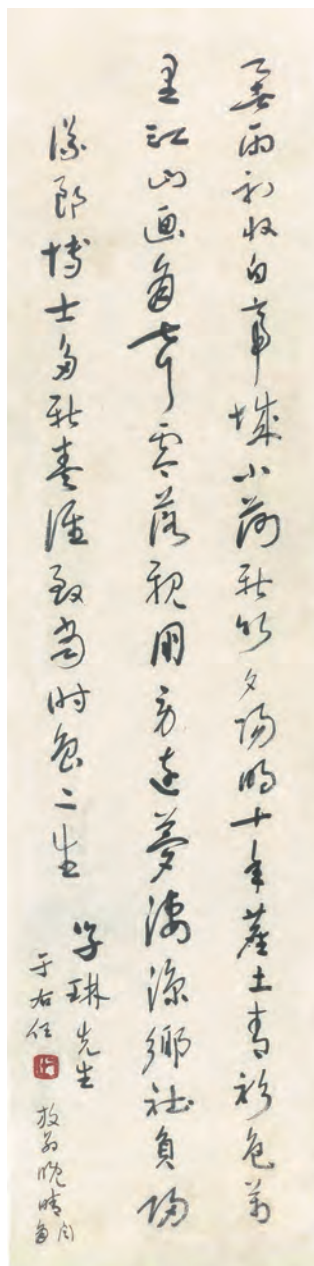 暑雨初收白帝城小荷新竹夕陽明十年塵土青衫色萬
里江山画角聲零落親朋勞遠夢淒涼鄉社負歸
議郎博士多新奏誰致當時魯二生
學琳先生
于右任
放翁晚晴聞角